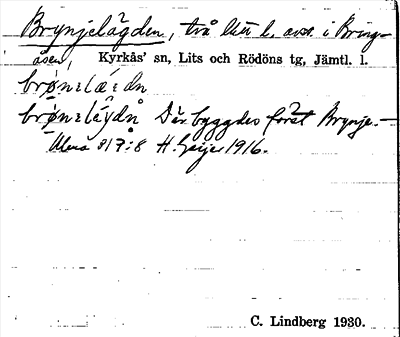 Brynjelägden, två litt l. avs. i Bring-
åsen, Kyrkås' sn, Lits och Rödöns tg, Jämtl. l.
brøn:læ:dn
brøn:läydn Där byggdes först Brynje.-
917:8 H. Geijer 1916.
C. Lindberg 1930.